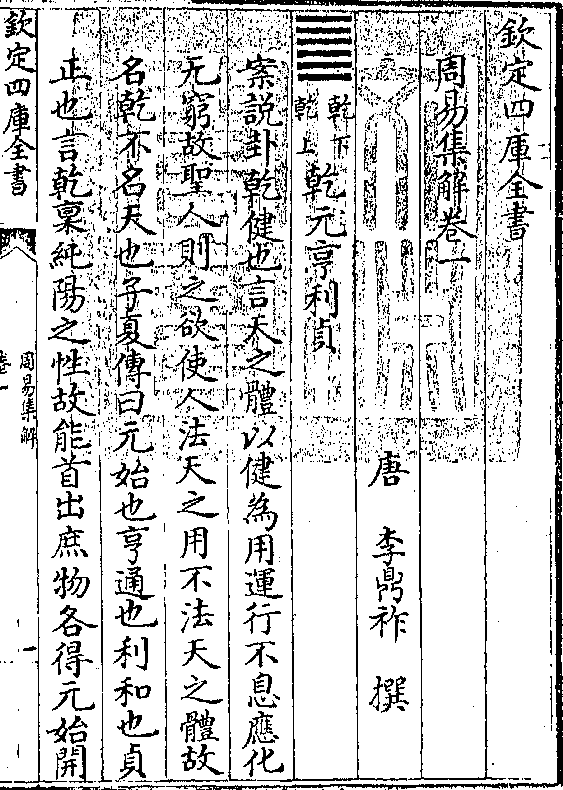 欽定四庫全書
周易集解卷一
唐 李鼎祚 撰
乾下
乾上
乾元亨利貞
案說卦乾健也言天之體以健為用運行不息應化
无窮故聖人則之欲使人法天之用不法天之體故
名乾不名天也子夏傳曰元始也亨通也利和也貞
正也言乾稟純陽之性故能首出庶物各得元始開
欽定四庫全書
周易集解
卷一
一